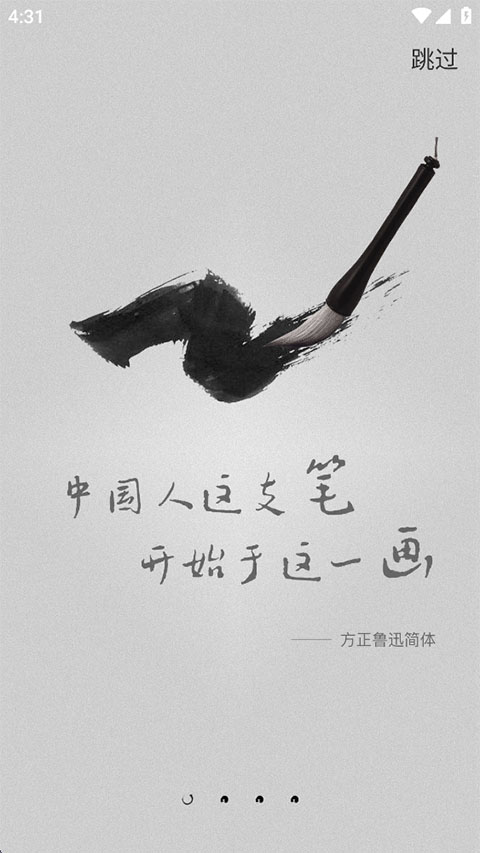 4:31
跳过
中国人这支笔
开始于这一画
——方正鲁迅简体